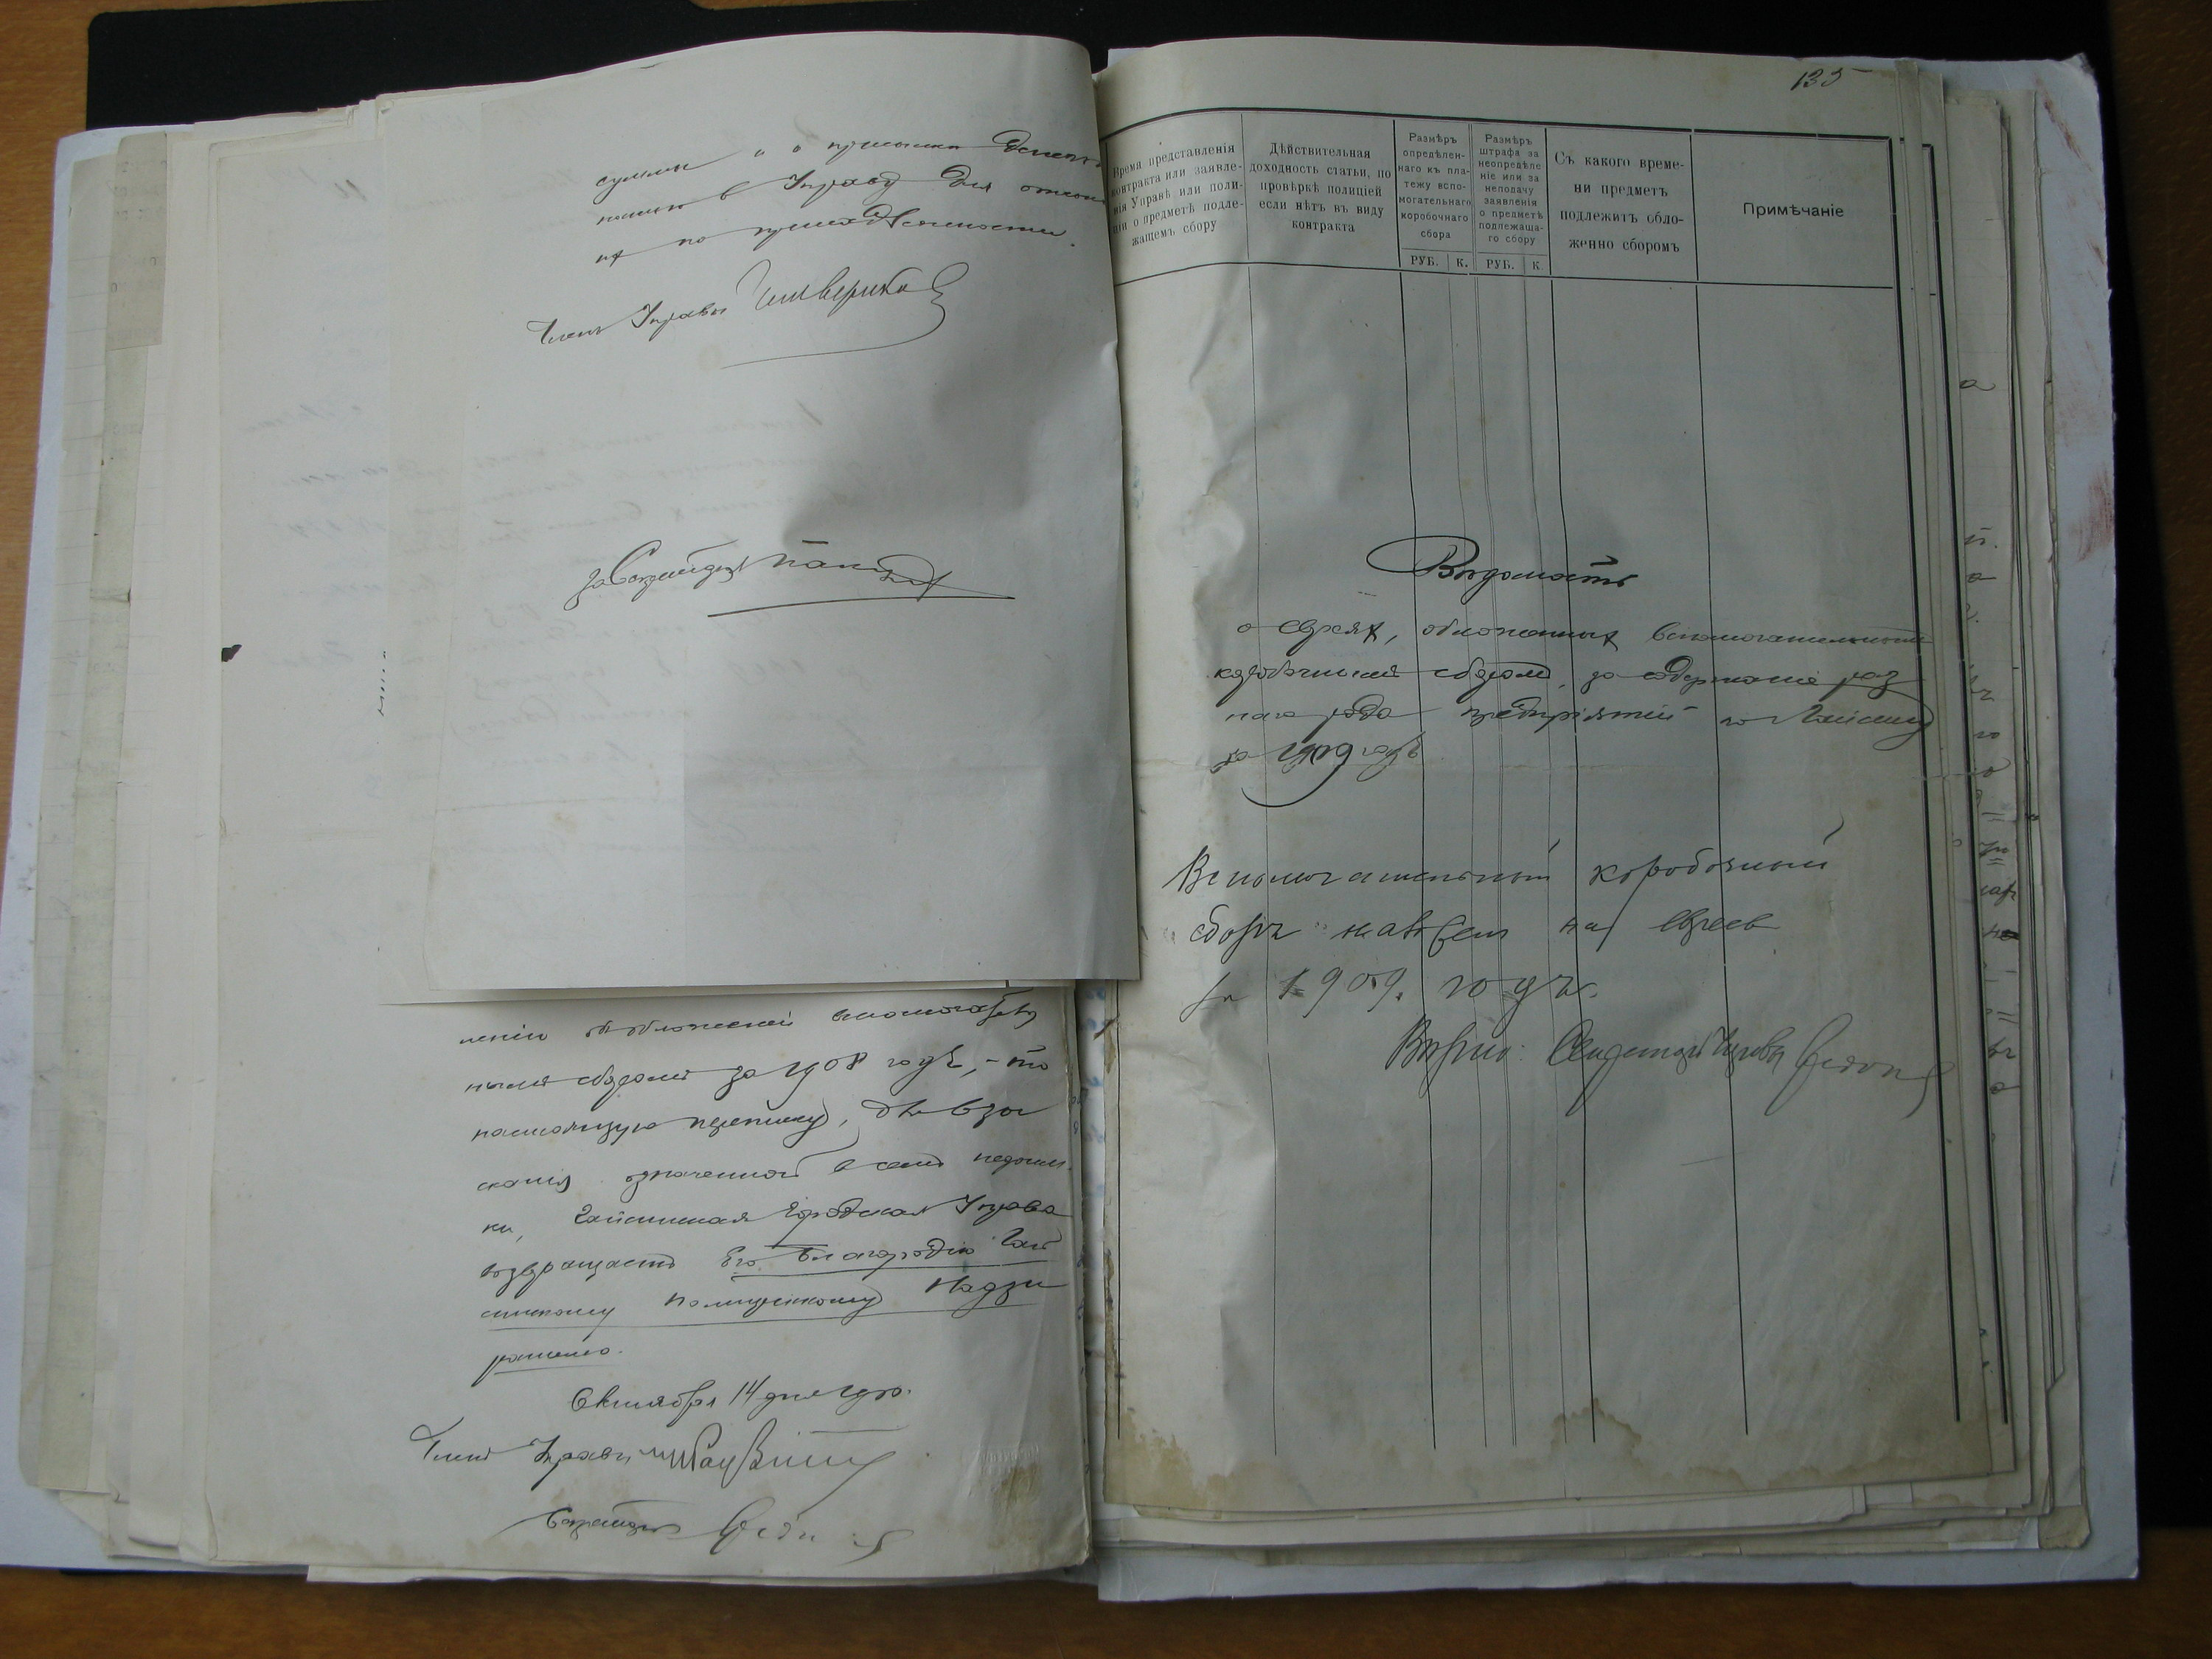 суммы и о присылке денегъ
въ Управу для
ихъ по принадлежности.
Членъ Управы
за Секретаря
ненію обложеній вспомогатель
нымъ сборомъ за 1908 годъ, – то
настоящую переписку, для взы
сканія означенной въ семъ недоим-
ки, Гайсинская Городская Управа
возвращаетъ Его Благородію Гай
синскому Полицейскому Надзи
рателю.
Октября 14 дня 1910.
Членъ Управы
Секретарь
135
Время представленія
контракта или заявле-
нія Управѣ или поли-
ціи о предметѣ подле-
жащемъ сбору
Дѣйствительная
доходность статьи, по
провѣркѣ полиціей
если нѣтъ въ виду
контракта
Размѣръ
опредѣлен-
наго къ пла-
тежу вспо-
могательнаго
коробочнаго
сбора
РУБ. К.
Размѣръ
штрафа за
неопредѣле
ніе или за
неподачу
заявленія
о предметѣ
подлежаща-
го сбору
РУБ. К
Съ какого време-
ни предметъ
подлежитъ обло-
женію сборомъ
Примѣчаніе
Вѣдомость
о евреяхъ, обложенныхъ вспомогательнымъ
коробочнымъ сборомъ, за содержаніе раз
наго рода предпріятій по Гайсину
за 1909 годъ
Вспомогательный коробочный
сборъ на евреев
за 1909. годъ.
Вѣрно: Секретарь Управы